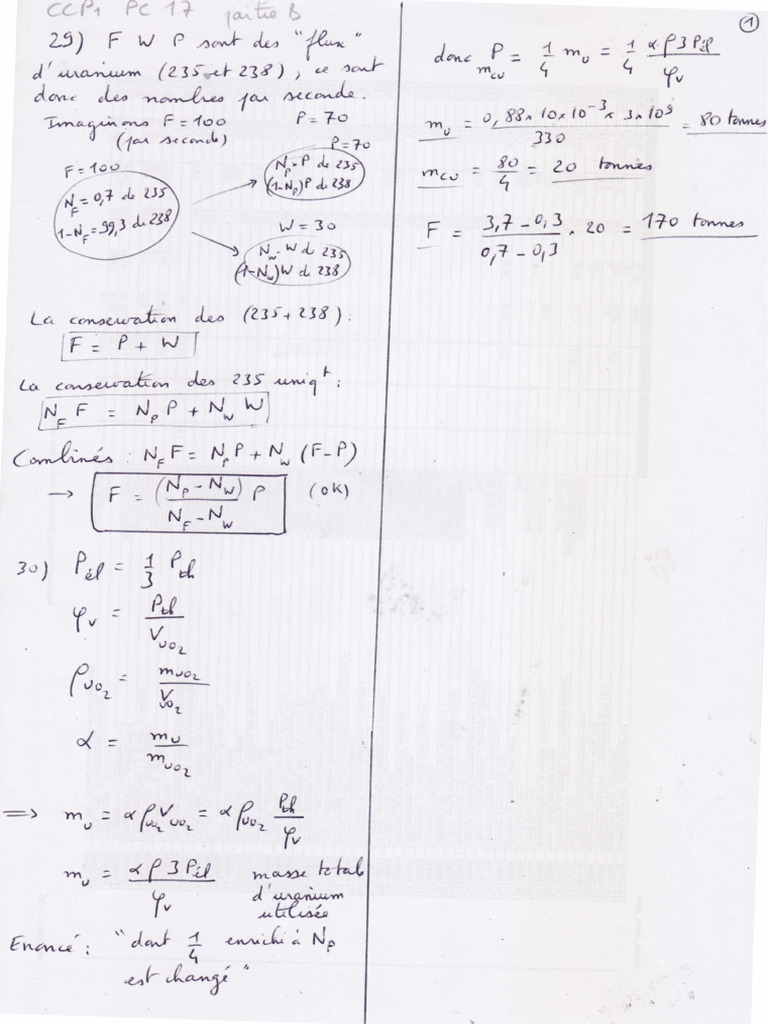 CCP1 PC 17 partie B
29) F W P sont des "flux"
d'uranium (235 et 238), ce sont
donc des nombres par seconde.
Imaginons F=100 P=70
(par seconde)
P=70
F=100
N_P P de 235
(1-N_P)P de 238
N_F = 0,7 de 235
1-N_F = 99,3 de 238
W = 30
N_W W de 235
(1-N_W)W de 238
La conservation des (235+238) :
F = P + W
La conservation des 235 uniqt :
N_F F = N_P P + N_W W
Combinés : N_F F = N_P P + N_W (F-P)
→ F = (N_P - N_W)/(N_F - N_W) P (OK)
30) Pél = 1/3 Pth
φv = Pth/V_UO2
ρ_UO2 = m_UO2/V_UO2
α = m_U/m_UO2
⟹ m_U = α ρ_UO2 V_UO2 = α ρ_UO2 Pth/φv
m_U = α ρ 3 Pél/φv masse total
d'uranium
utilisée
Enoncé : "dont 1/4 enrichi à N_P
est changé"
1
donc P m_CU = 1/4 m_U = 1/4 α ρ 3 Pél/φv
m_U = 0,88 × 10 × 10^-3 × 3 × 10^9/330 = 80 tonnes
m_CU = 80/4 = 20 tonnes
F = (3,7 - 0,3)/(0,7 - 0,3) . 20 = 170 tonnes